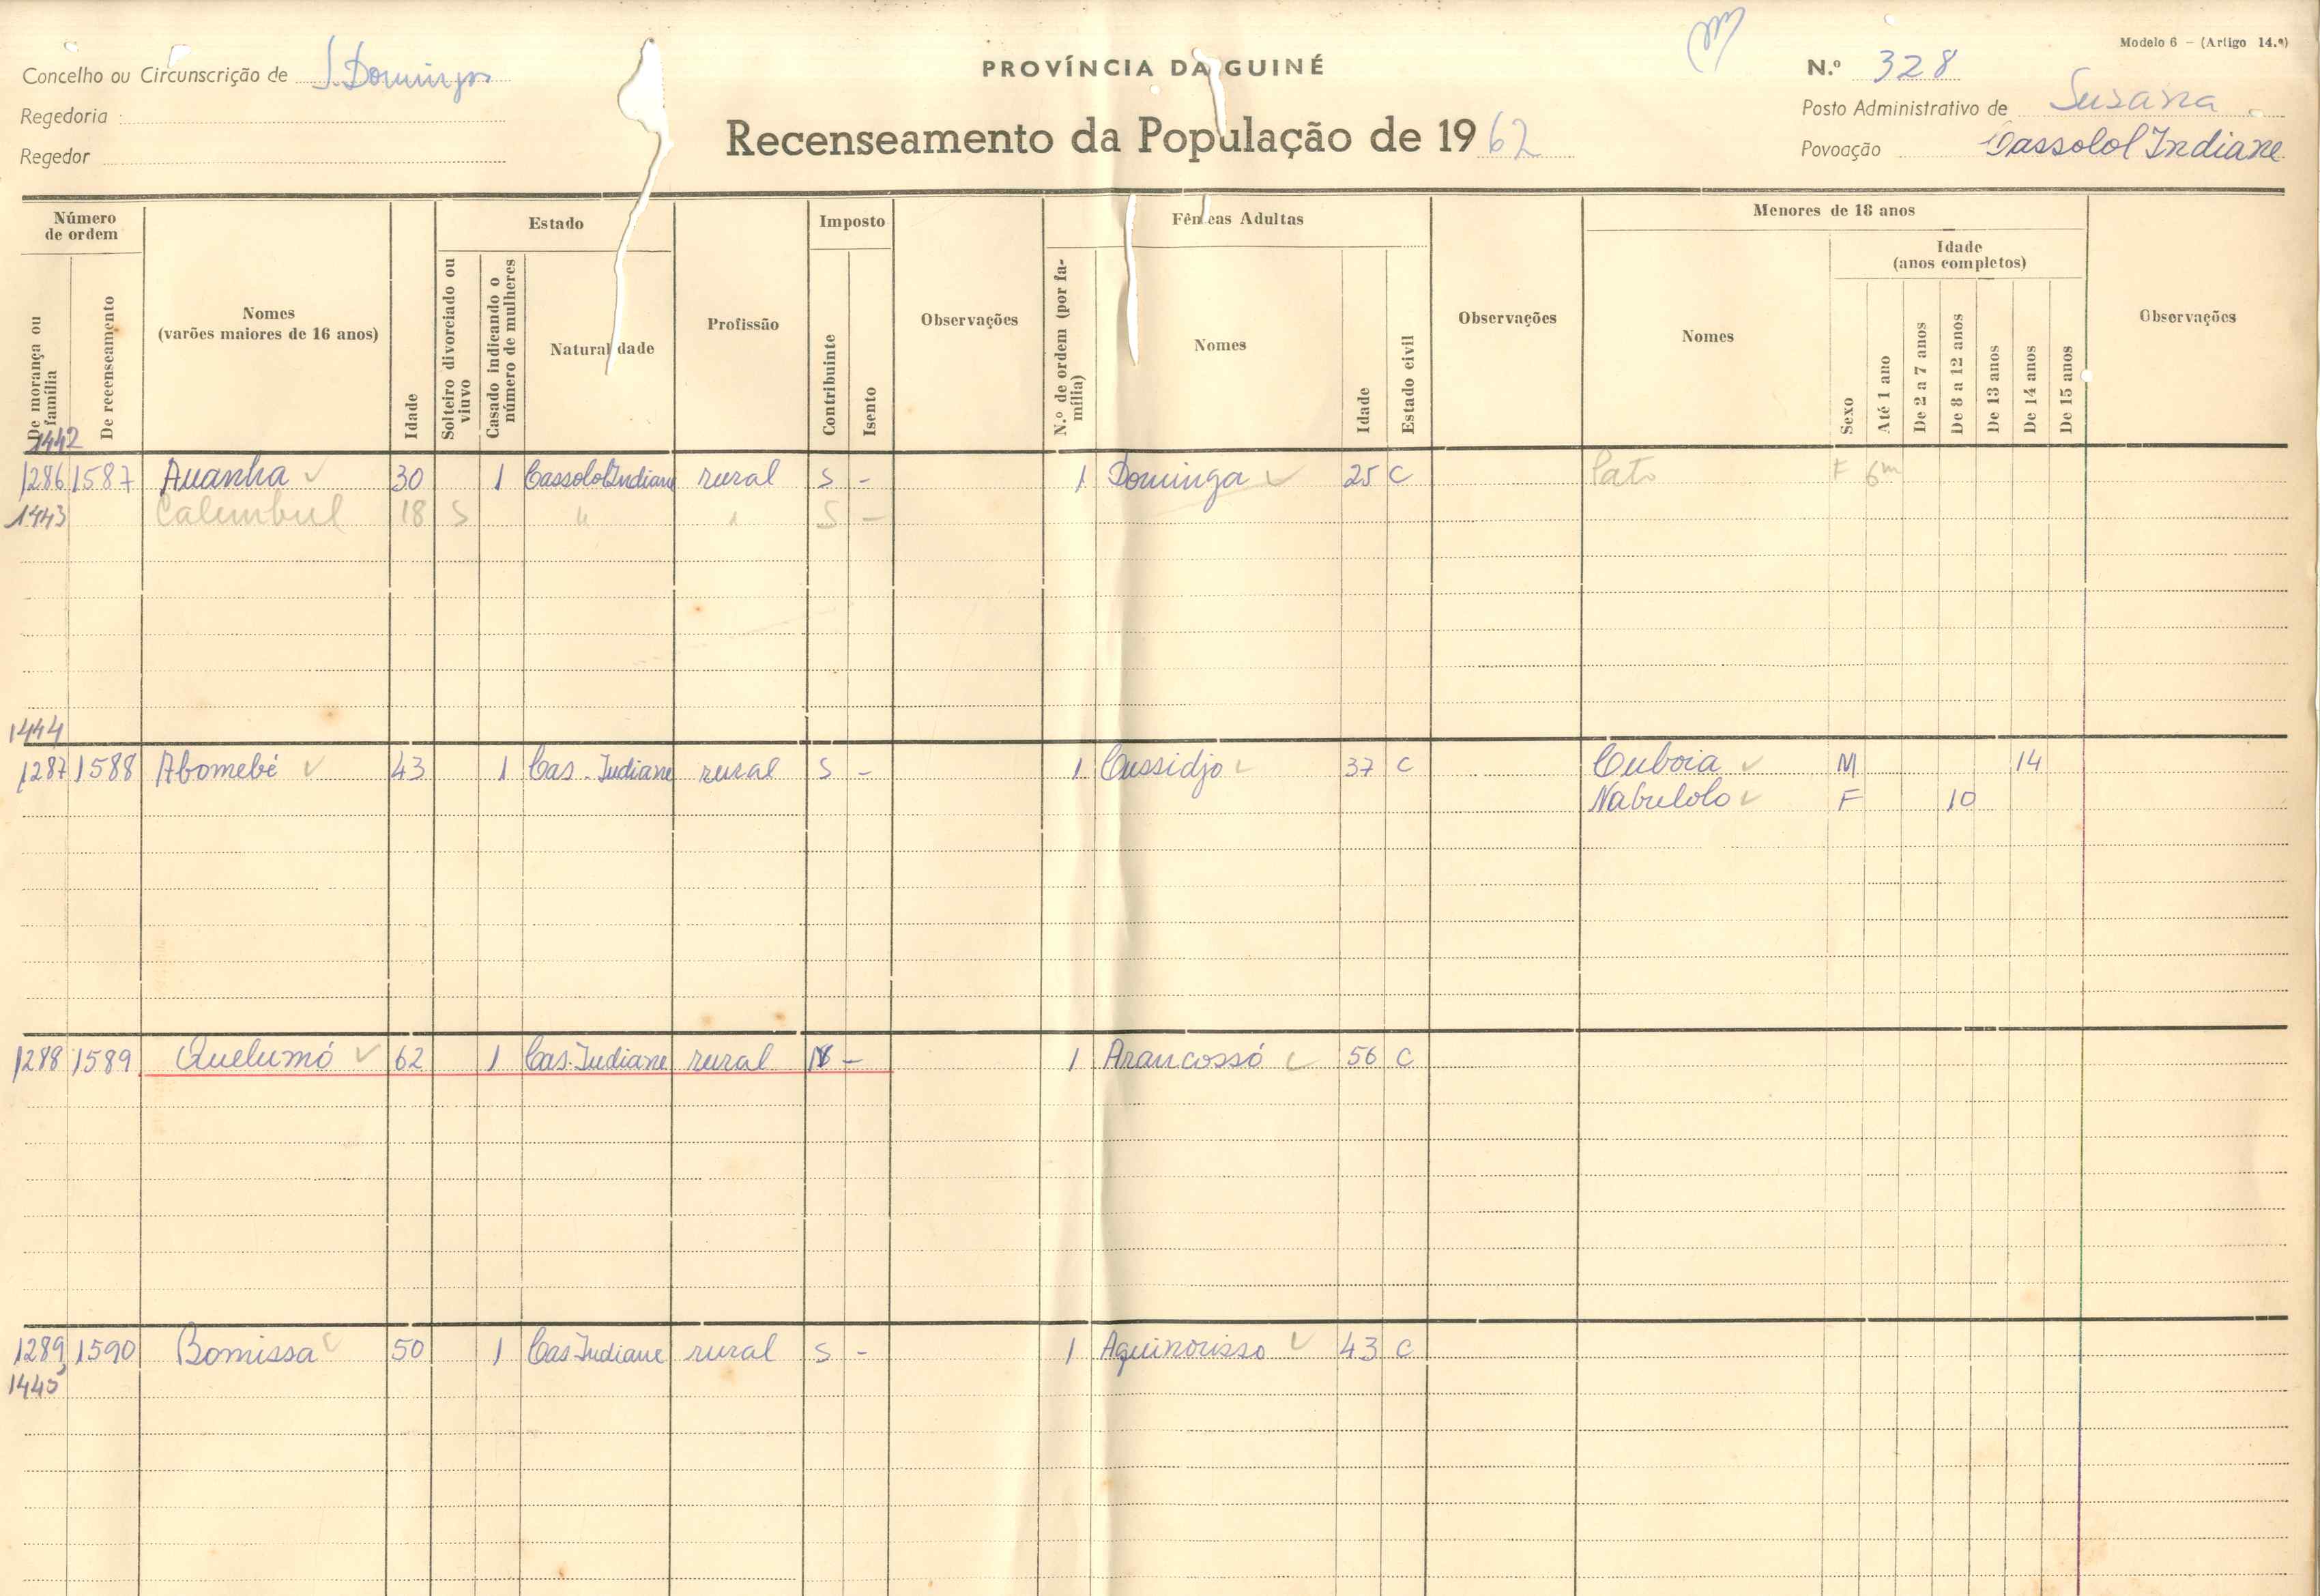 Modelo 6 - (Artigo 14.º)
Concelho ou Circunscrição de S. Domingos
PROVÍNCIA DA GUINÉ
N.º 328
Regedoria
Posto Administrativo de Susana
Recenseamento da População de 1962
Regedor
Povoação Cassolol Indiane
Número de ordem
Estado
Imposto
Fêmeas Adultas
Menores de 18 anos
Idade (anos completos)
De morança ou família
De recenseamento
Nomes (varões maiores de 16 anos)
Idade
Solteiro divorciado ou viuvo
Casado indicando o número de mulheres
Naturalidade
Profissão
Contribuinte
Isento
Observações
N.º de ordem (por família)
Nomes
Idade
Estado civil
Observações
Nomes
Sexo
Até 1 ano
De 2 a 7 anos
De 8 a 12 anos
De 13 anos
De 14 anos
De 15 anos
Observações
1442
1286 1587 Auanha 30 1 Cassolol Indiane rural S - 1 Dominga 25 C Pato F 6m
1443 Calumbul 18 S " " S -
1444
1287 1588 Abomebé 43 1 Cas. Indiane rural S - 1 Cussidjo 37 C Cuboia M 14
Nabulolo F 10
1288 1589 Quelumó 62 1 Cas. Indiane rural - 1 Arancossó 56 C
1289 1590 Bomissa 50 1 Cas Indiane rural S - 1 Aquinorisso 43 C
1445